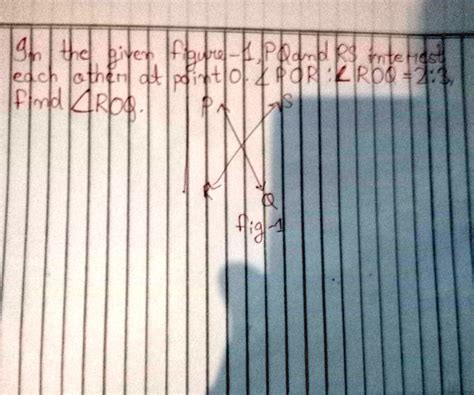 In the given figure-1, PQ and RS interest
each other at point O. ∠POR : ∠ROQ = 2:3,
find ∠ROQ.
P S
R Q
fig-1